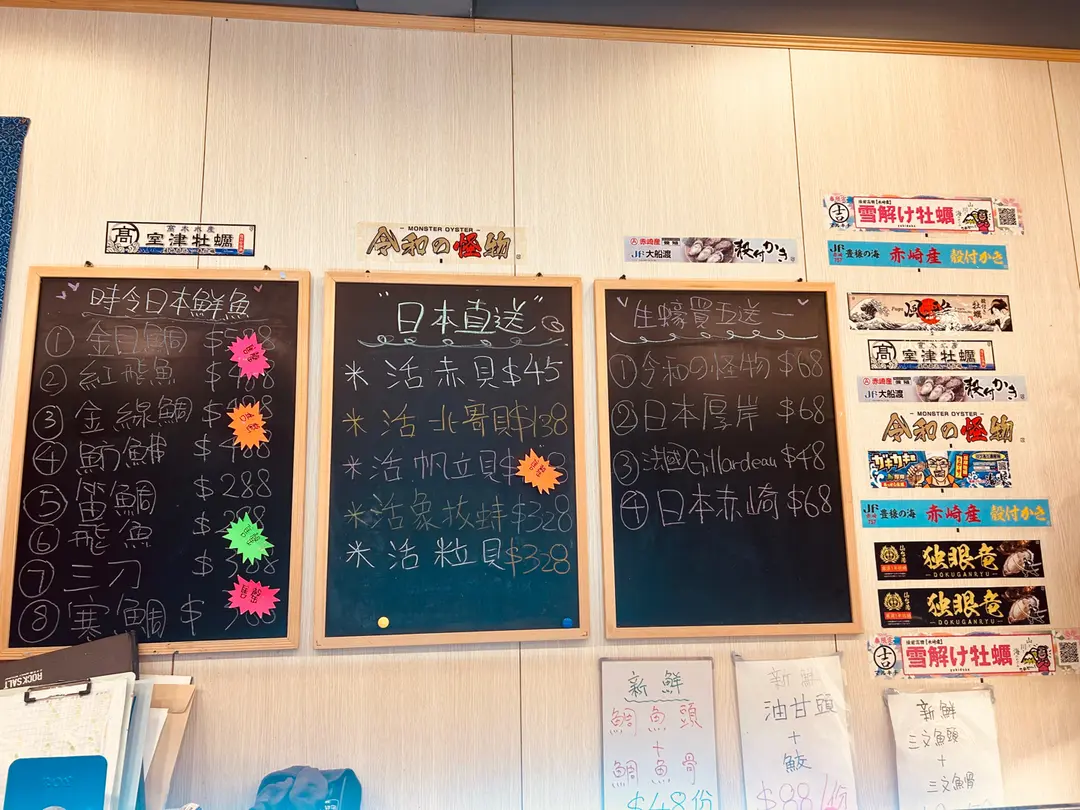 髙 富木水産 室津牡蠣
時令日本鮮魚
① 金目鯛 $
② 紅飛魚 $
③ 金線鯛 $
④ 魴鮄 $
⑤ 笛鯛 $288
⑥ 飛魚 $
⑦ 三刀 $
⑧ 寒鯛 $
- MONSTER OYSTER -
令和の怪物
"日本直送"
* 活赤貝 $45
* 活北寄貝 $138
* 活帆立貝 $
* 活象拔蚌 $328
* 活粒貝 $328
赤崎産
JF大船渡 殻付かき
生蠔買五送一
① 令和の怪物 $68
② 日本厚岸 $68
③ 法國Gillardeau $48
④ 日本赤崎 $68
吉 雪解け牡蠣
JF 豊穣の海 赤崎産 殻付かき
髙 室津牡蠣
赤崎産
JF大船渡 殻付かき
- MONSTER OYSTER -
令和の怪物
カキカキ
JF 豊穣の海 赤崎産 殻付かき
独眼竜
- DOKUGANRYU -
独眼竜
- DOKUGANRYU -
吉 雪解け牡蠣
ROCKSALT
新鮮
鯛魚頭
+
鯛魚骨
$48份
新鮮
油甘頭
+
鮫
$98/份
新鮮
三文魚頭
+
三文魚骨